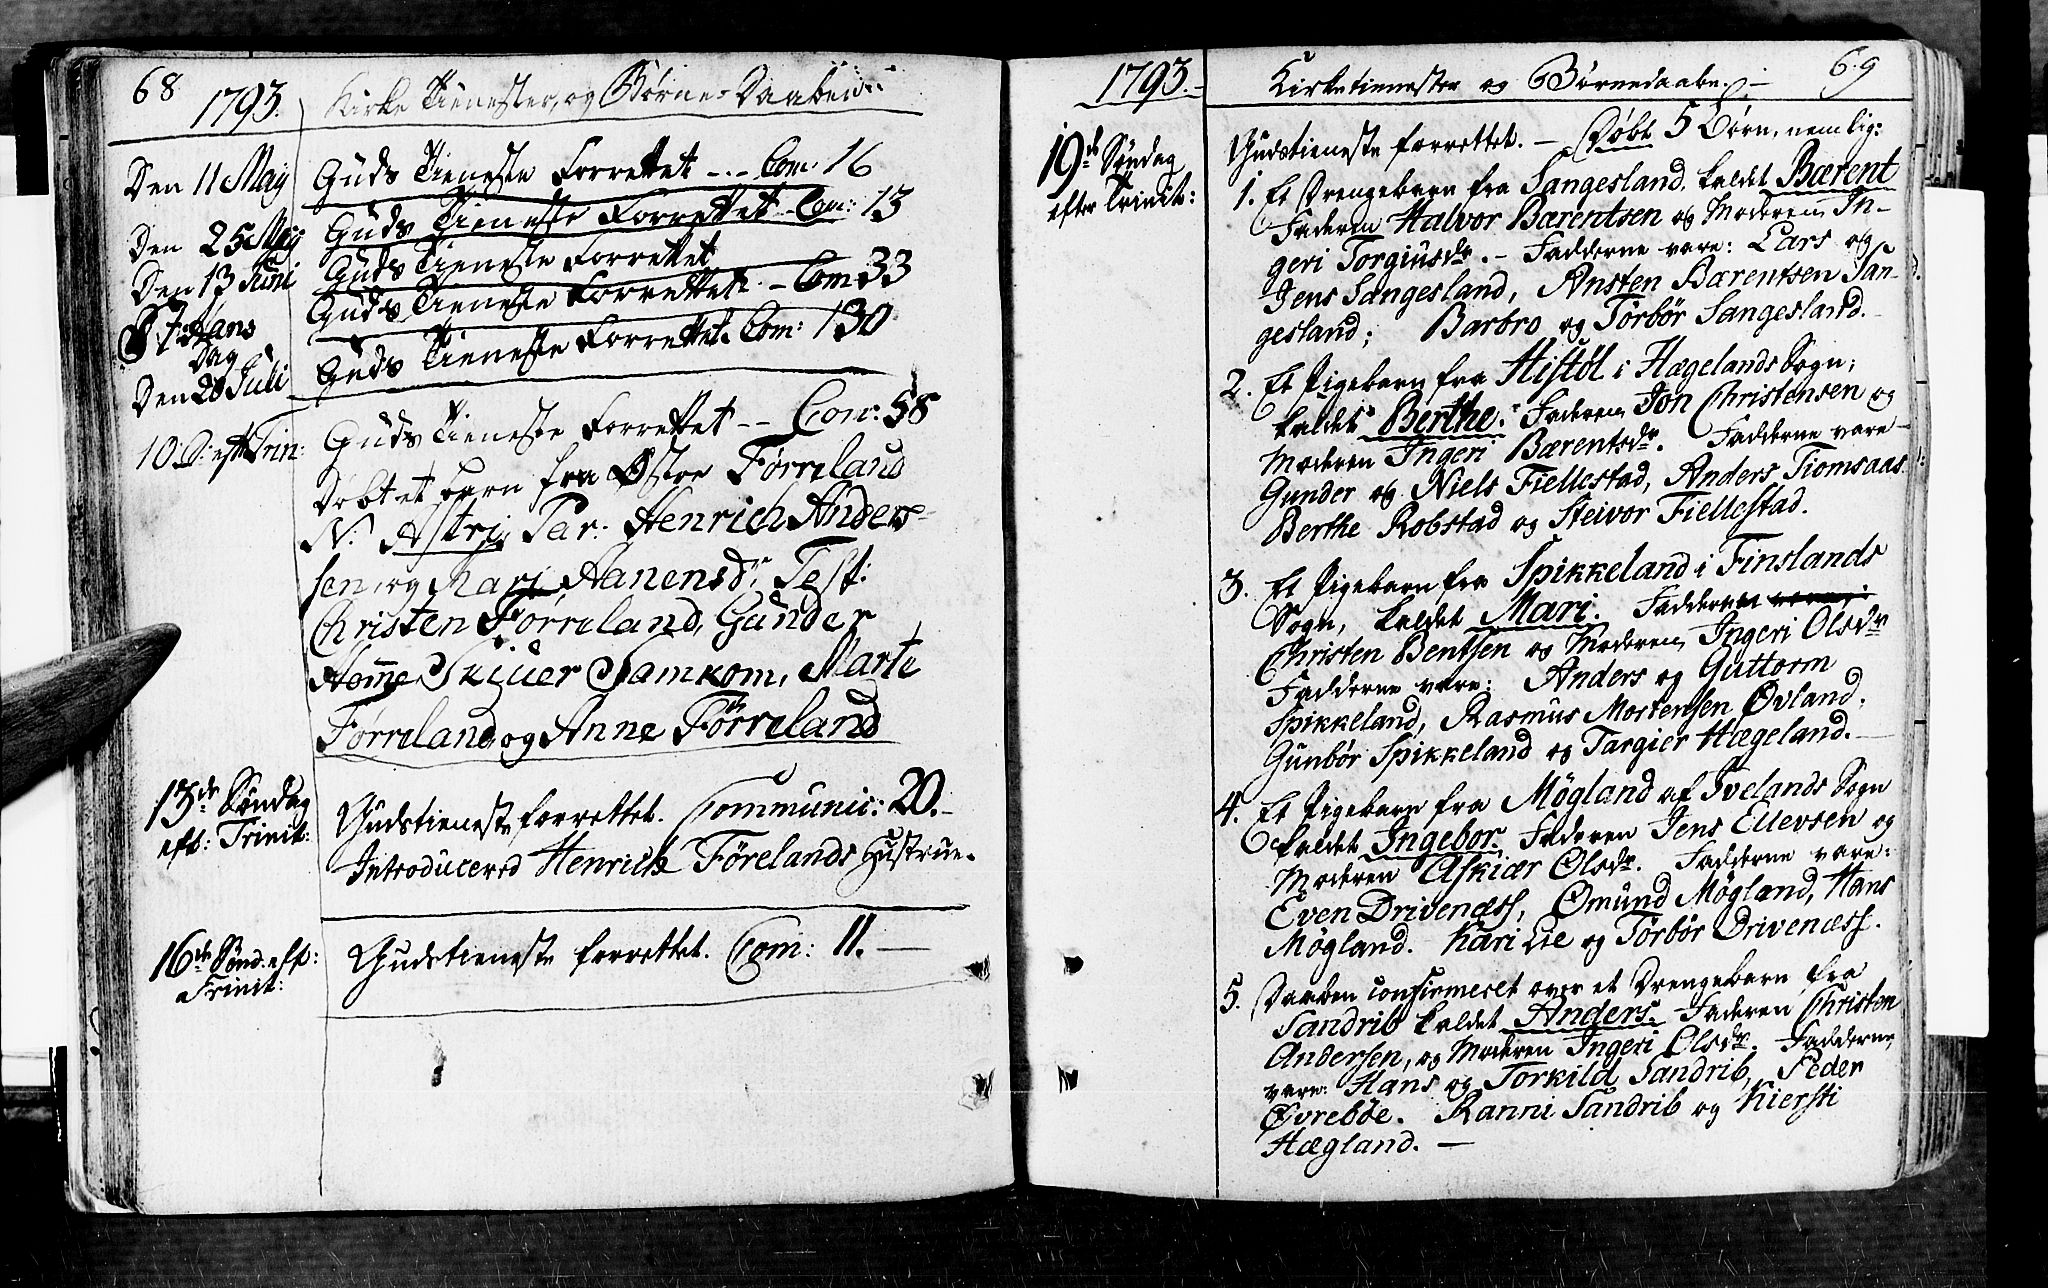 68
1793.
Kirke Tienester, og Børne-Daaben
Den 11 May
Guds Tieneste Forrettet - - - Com: 16
Den 25 May
Guds Tieneste Forrettet - Com: 13
Den 13 Juni
Guds Tieneste Forrettet
St. Hans
Dag
Guds Tieneste Forrettet. - Com 33
Den 28 Juli
Guds Tieneste Forrettet. Com: 130
10. S: eft Trin:
Guds Tieneste Forrettet - - Com: 58
Døbt et barn fra Østre Førreland
N: Astri, Par: Henrich Anders-
sen, og Mari Aanensdr, Test:
Christen Førreland, Gunder
Homme Skiuer Kamkom, Marte
Førreland, og Anne Førreland
13de Søndag
eft: Trinit:
Gudstieneste forrettet. Communic: 20.-
Introducered Henrich Førelands Hustrue.
16de Sønd. eft:
Trinit:
Gudstieneste forrettet. Com: 11. —
1793.-
Kirketienester og Børnedaabe. -
69
19de Søndag
efter Trinit:
Gudstieneste forrettet. - Døbt 5 Børn, nemlig:
1. Et Drengebarn fra Sangesland, kaldet Bærent
Faderen Halvor Bærentsen og Moderen In-
geri Torgiusdr. - Fadderne vare: Lars og
Jens Sangesland, Ansten Bærentsen San-
gesland; Barbro og Tørbør Sangesland.
2. Et Pigebarn fra Histøl i Hægelands Sogn;
kaldet Berthe: Faderen Jon Christensen og
Moderen Ingeri Bærentsdr. Fadderne vare
Gunder og Niels Fiellestad, Anders Tiomsaas:
Berthe Robstad og Steivor Fiellestad.
3. Et Pigebarn fra Spikkeland i Finslands
Sogn, kaldet Mari. Fadderne vare:
Christen Bentsen og Moderen Ingeri Olsdr
Fadderne vare: Anders og Guttorm
Spikkeland, Rasmus Mortensen Øvland.
Gunbør Spikkeland og Targier Hægeland. -
4. Et Pigebarn fra Møgland af Ivelands Sogn
kaldet Ingebor. Faderen Jens Ellevsen og
Moderen Askiær Olsdr. Fadderne vare:
Even Drivenæss, Ømund Møgland, Hans
Møgland. Kari Lie og Tørbør Drivenæss.
5. Daaben confirmeret over et Drengebarn fra
Sandrib kaldet Anders. Faderen Christen
Andersen, og Moderen Ingeri Olsdr. Fadderne
vare: Hans og Torkild Sandrib, Peder
Øvrebøe. Ranni Sandrib og Kiersti
Hægland. —